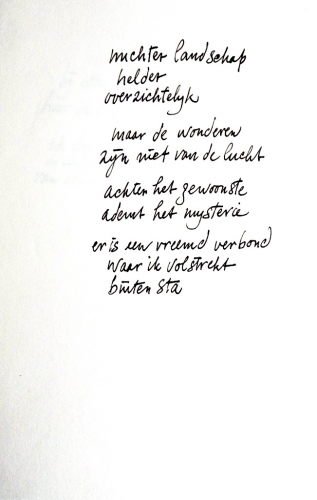 nuchter landschap
helder
overzichtelijk
maar de wonderen
zijn niet van de lucht
achter het gewoonste
ademt het mysterie
er is een vreemd verbond
waar ik volstrekt
buiten sta